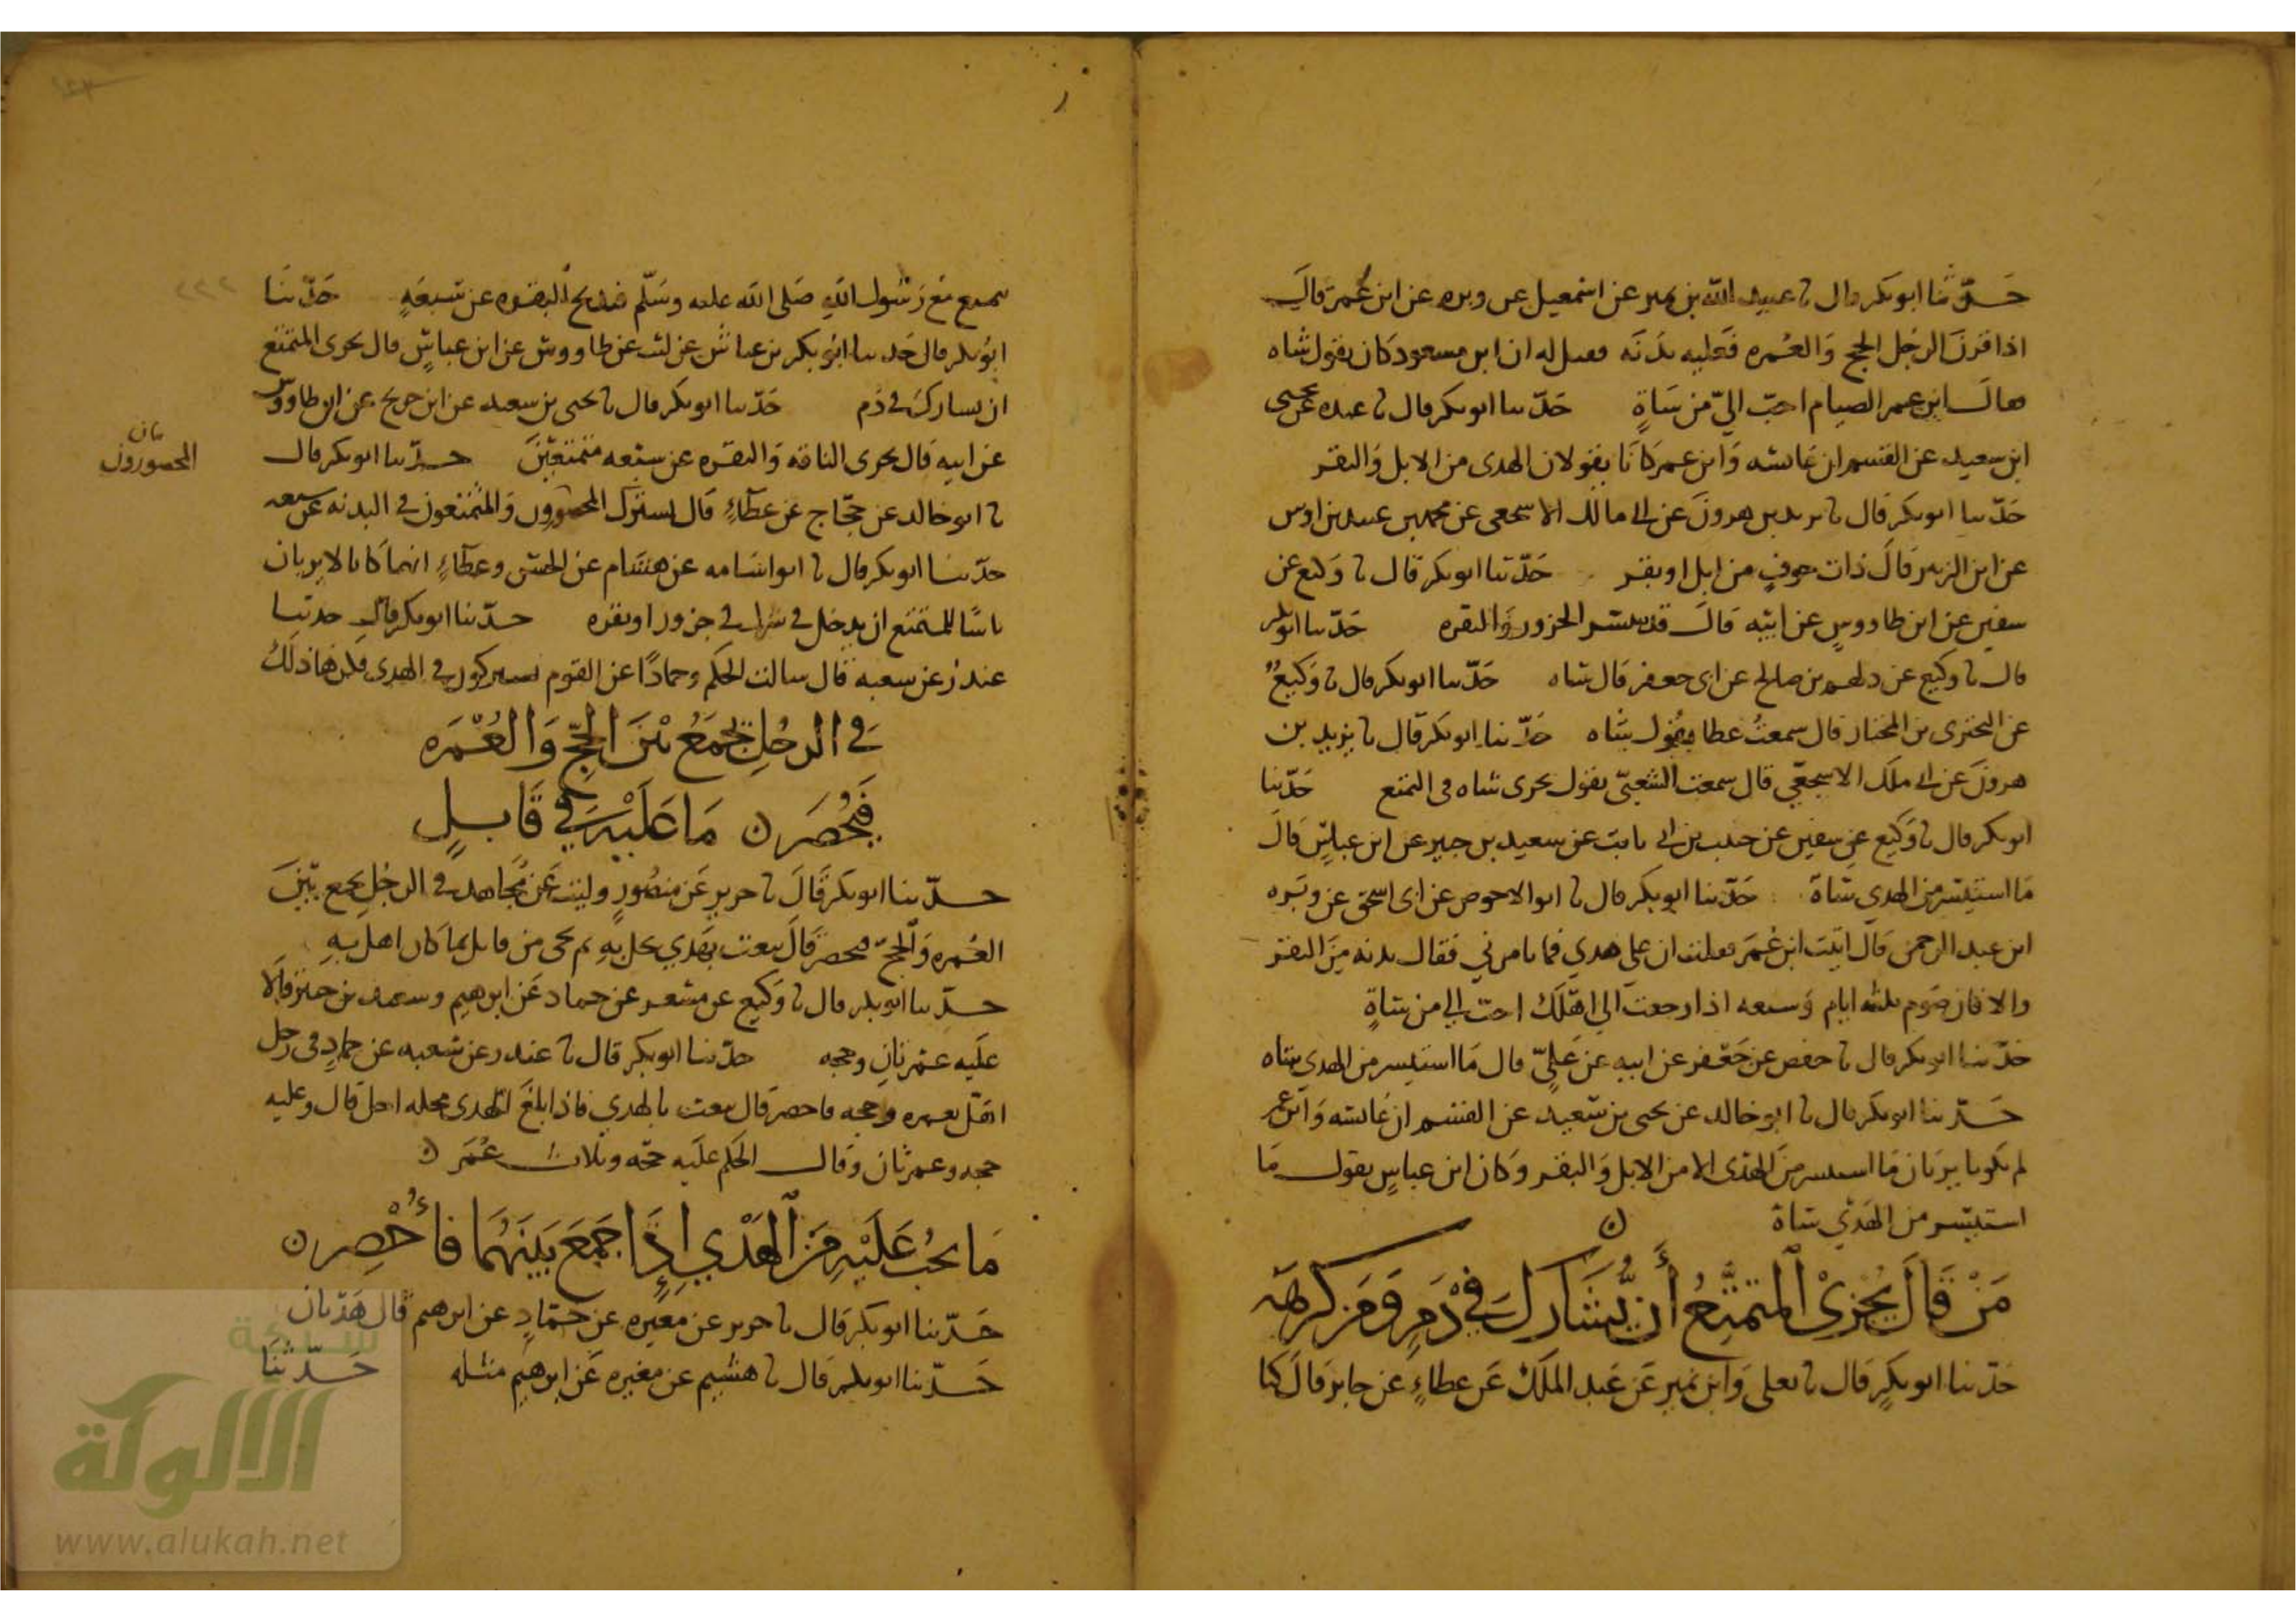 حدثنا ابو بكر قال نا عبيد الله بن نمير عن اسمعيل عن وبره عن ابن عمر قال
اذا قرن الرجل الحج والعمره فعليه بدنه فقيل له ان ابن مسعود كان يقول شاه
فقال ابن عمر الصيام احب الي من شاة حدثنا ابو بكر قال نا عبده عن يحيى
ابن سعيد عن القسم ان عائشه وابن عمر كانا يقولان الهدى من الابل والبقر
حدثنا ابو بكر قال نا يزيد بن هرون عن ابي مالك الاشجعي عن محمد بن عبيد بن اوس
عن ابن الزبير قال ذات جوف من ابل او بقر حدثنا ابو بكر قال نا وكيع عن
سفين عن ابن طاووس عن ابيه قال الجزور والبقره حدثنا ابو بكر
قال نا وكيع عن دلهم بن صالح عن ابى جعفر قال شاه حدثنا ابو بكر قال نا وكيع
عن البحترى بن المختار قال سمعت عطا يقول شاه حدثنا ابو بكر قال نا يزيد بن
هرون عن ابي ملك الاشجعي قال سمعت الشعبي يقول يجزى شاه فى التمتع حدثنا
ابو بكر قال نا وكيع عن سفين عن حبيب بن ابي ثابت عن سعيد بن جبير عن ابن عباس قال
ما استيسر من الهدي شاة حدثنا ابو بكر قال نا ابو الاحوص عن ابى اسحق عن وبره
ابن عبد الرحمن قال اتيت ابن عمر فقلت ان علي هدي فما تامرني فقال بدنه من البقر
والا فان صوم ثلثه ايام وسبعه اذا رجعت الي اهلك احب الي من شاة
حدثنا ابو بكر قال نا حفص عن جعفر عن ابيه عن علي قال ما استيسر من الهدي شاه
حدثنا ابو بكر قال نا ابو خالد عن يحيى بن سعيد عن القسم ان عائشه وابن عمر
لم يكونا يريان ما استيسر من الهدى الا من الابل والبقر وكان ابن عباس يقول ما
استيسر من الهدي شاة
من قال يجزئ المتمتع أن يشارك في دم ومن كرهه
حدثنا ابو بكر قال نا يعلى وابن نمير عن عبد الملك عن عطاء عن جابر قال كنا
نتمتع مع رسول الله صلى الله عليه وسلم فنذبح البقره عن سبعة حدثنا
ابو بكر قال حدثنا ابو بكر بن عياش عن ليث عن طاووس عن ابن عباس قال يجزى المتمتع
ان يشارك في دم حدثنا ابو بكر قال نا يحيى بن سعيد عن ابن جريج عن ابن طاووس
عن ابيه قال يجزى الناقه والبقره عن سبعه متمتعين حدثنا ابو بكر قال
نا ابو خالد عن حجاج عن عطاء قال يشترك المحصورون والمتمتعون في البدنه عن سبعه
المحصورون
حدثنا ابو بكر قال نا ابو اسامه عن هشام عن الحسن وعطاء انهما كانا لا يريان
باسا للمتمتع ان يدخل في شرك في جزور او بقره حدثنا ابو بكر قال حدثنا
غندر عن شعبه قال سالت الحكم وحمادا عن القوم يشتركون في الهدي فكرها ذلك
في الرجل يجمع بين الحج والعمره
فيحصر ما عليه في قابل
حدثنا ابو بكر قال نا جرير عن منصور وليث عن مجاهد في الرجل يجمع بين
العمره والحج فيحصر قال يبعث بهدي يحل به ثم يحى من قابل بما كان اهل به
حدثنا ابو بكر قال نا وكيع عن مسعر عن حماد عن ابرهيم وسعيد بن جبير قالا
عليه عمرتان وحجه حدثنا ابو بكر قال نا غندر عن شعبه عن حماد فى رجل
اهل بعمره وحجه فاحصر قال يبعث بالهدي فاذا بلغ الهدى محله احل قال وعليه
حجه وعمرتان وقال الحكم عليه حجه وثلاث عمر
ما يجب عليه من الهدي إذا جمع بينهما فأحصر
حدثنا ابو بكر قال نا جرير عن مغيره عن حماد عن ابرهيم قال هديان
حدثنا ابو بكر قال نا هشيم عن مغيره عن ابرهيم مثله حدثنا
شبكة
الألوكة
www.alukah.net